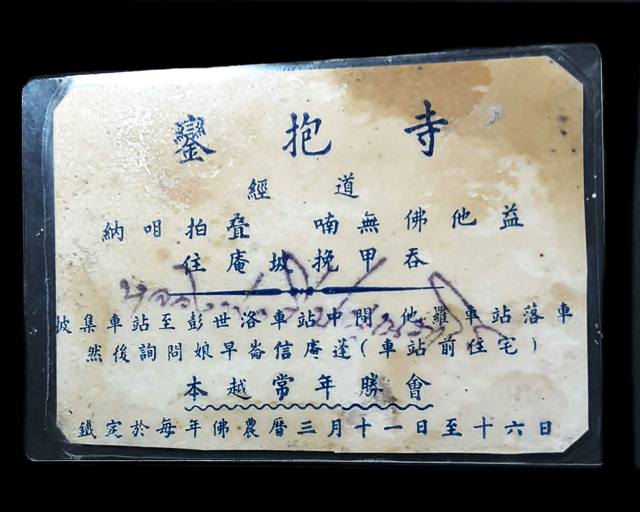 鑾抱寺
經道
納咱拍叠 喃無佛他益
住庵坡挽甲吞
披集車站至彭世洛車站中間，他羅車站落車
然後詢問娘早崙信庵蓬（車站前住宅）
本越常年勝會
鐵定於每年佛農曆三月十一日至十六日